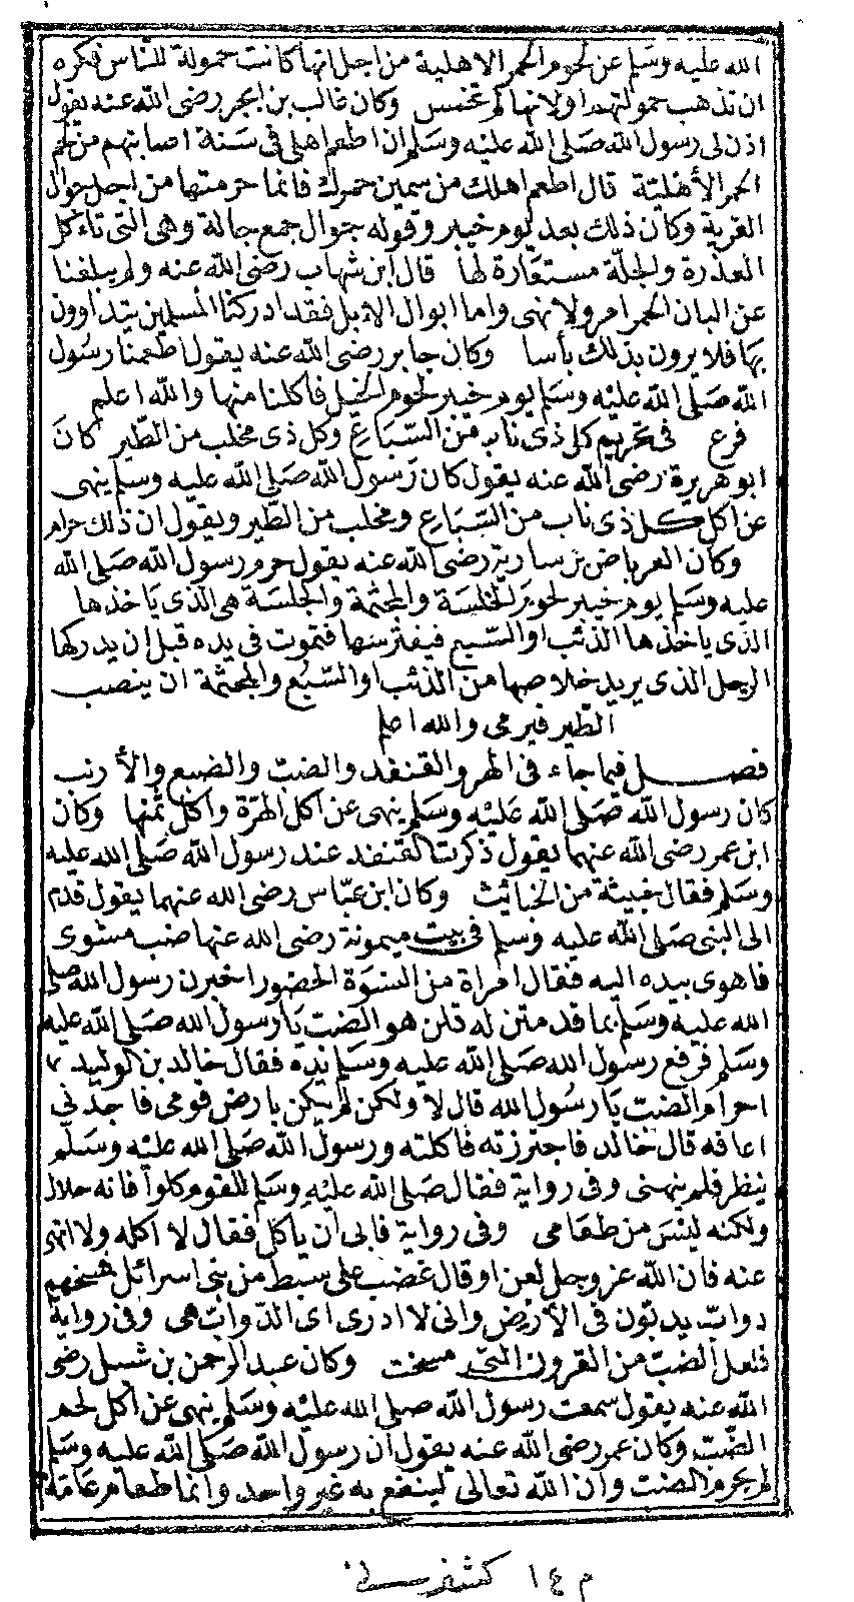 الله عليه وسلم عن لحوم الحمر الاهلية من اجل انها كانت حمولة للناس فكره
ان تذهب حمولتهم او لانها لم تخمس وكان غالب بن ابجر رضى الله عنه يقول
اذن لى رسول الله صلى الله عليه وسلم ان اطعم اهلى فى سنة اصابتهم من لحم
الحمر الأهلية قال اطعم اهلك من سمين حمرك فانما حرمتها من اجل جوال
القرية وكان ذلك بعد يوم خيبر وقوله جوال جمع جالة وهى التى تاءكل
العذرة والجلّة مستعارة لها قال ابن شهاب رضى الله عنه ولم يبلغنا
عن البان الحمر امر ولا نهى واما ابوال الابل فقد ادركنا المسلمين يتداوون
بها فلا يرون بذلك بأسا وكان جابر رضى الله عنه يقول اطعمنا رسول
الله صلى الله عليه وسلم يوم خيبر لحوم الخيل فاكلنا منها والله اعلم
فرع فى تحريم كل ذى ناب من السباع وكل ذى مخلب من الطير كان
ابو هريرة رضى الله عنه يقول كان رسول الله صلى الله عليه وسلم ينهى
عن اكل كل ذى ناب من السباع ومخلب من الطير ويقول ان ذلك حرام
وكان العرباض بن سارية رضى الله عنه يقول حرم رسول الله صلى الله
عليه وسلم يوم خيبر لحوم الخلسة والمجثمة والخلسة هى الذى ياخذها
الذى ياخذها الذئب او السبع فيفترسها فتموت فى يده قبل ان يدركها
الرجل الذى يريد خلاصها من الذئب او السبع والمجثمة ان ينصب
الطير فيرمى والله اعلم
فصل فيما جاء فى الهر والقنفد والضب والضبع والأرنب
كان رسول الله صلى الله عليه وسلم ينهى عن اكل الهرة واكل ثمنها وكان
ابن عمر رضى الله عنهما يقول ذكرت القنفد عند رسول الله صلى الله عليه
وسلم فقال خبيثة من الخبائث وكان ابن عباس رضى الله عنهما يقول قدم
الى النبى صلى الله عليه وسلم فى بيت ميمونة رضى الله عنها ضب مشوى
فاهوى بيده اليه فقال امراة من النسوة الحضور اخبرن رسول الله صلى
الله عليه وسلم بما قدمتن له قلن هو الضب يا رسول الله صلى الله عليه
وسلم فرفع رسول الله صلى الله عليه وسلم يده فقال خالد بن الوليد
احرام الضب يا رسول الله قال لا ولكن لم يكن بارض قومى فاجدنى
اعافه قال خالد فاجترزته فاكلته ورسول الله صلى الله عليه وسلم
ينظر فلم ينهنى وفى رواية فقال صلى الله عليه وسلم للقوم كلوا فانه حلال
ولكنه ليس من طعامى وفى رواية فابى ان ياكل فقال لا اكله ولا انهى
عنه فان الله عز وجل لعن او قال غضب على سبط من بنى اسرائل فمسخهم
دواب يدبون فى الأرض وانى لا ادرى اى الدواب هى وفى رواية
فلعل الضب من القرون التى مسخت وكان عبد الرحمن بن شبل رضى
الله عنه يقول سمعت رسول الله صلى الله عليه وسلم ينهى عن اكل لحم
الضب وكان عمر رضى الله عنه يقول ان رسول الله صلى الله عليه وسلم
لم يحرم الضب وان الله تعالى لينفع به غير واحد وانما طعام عامة
م ١٤ كشف